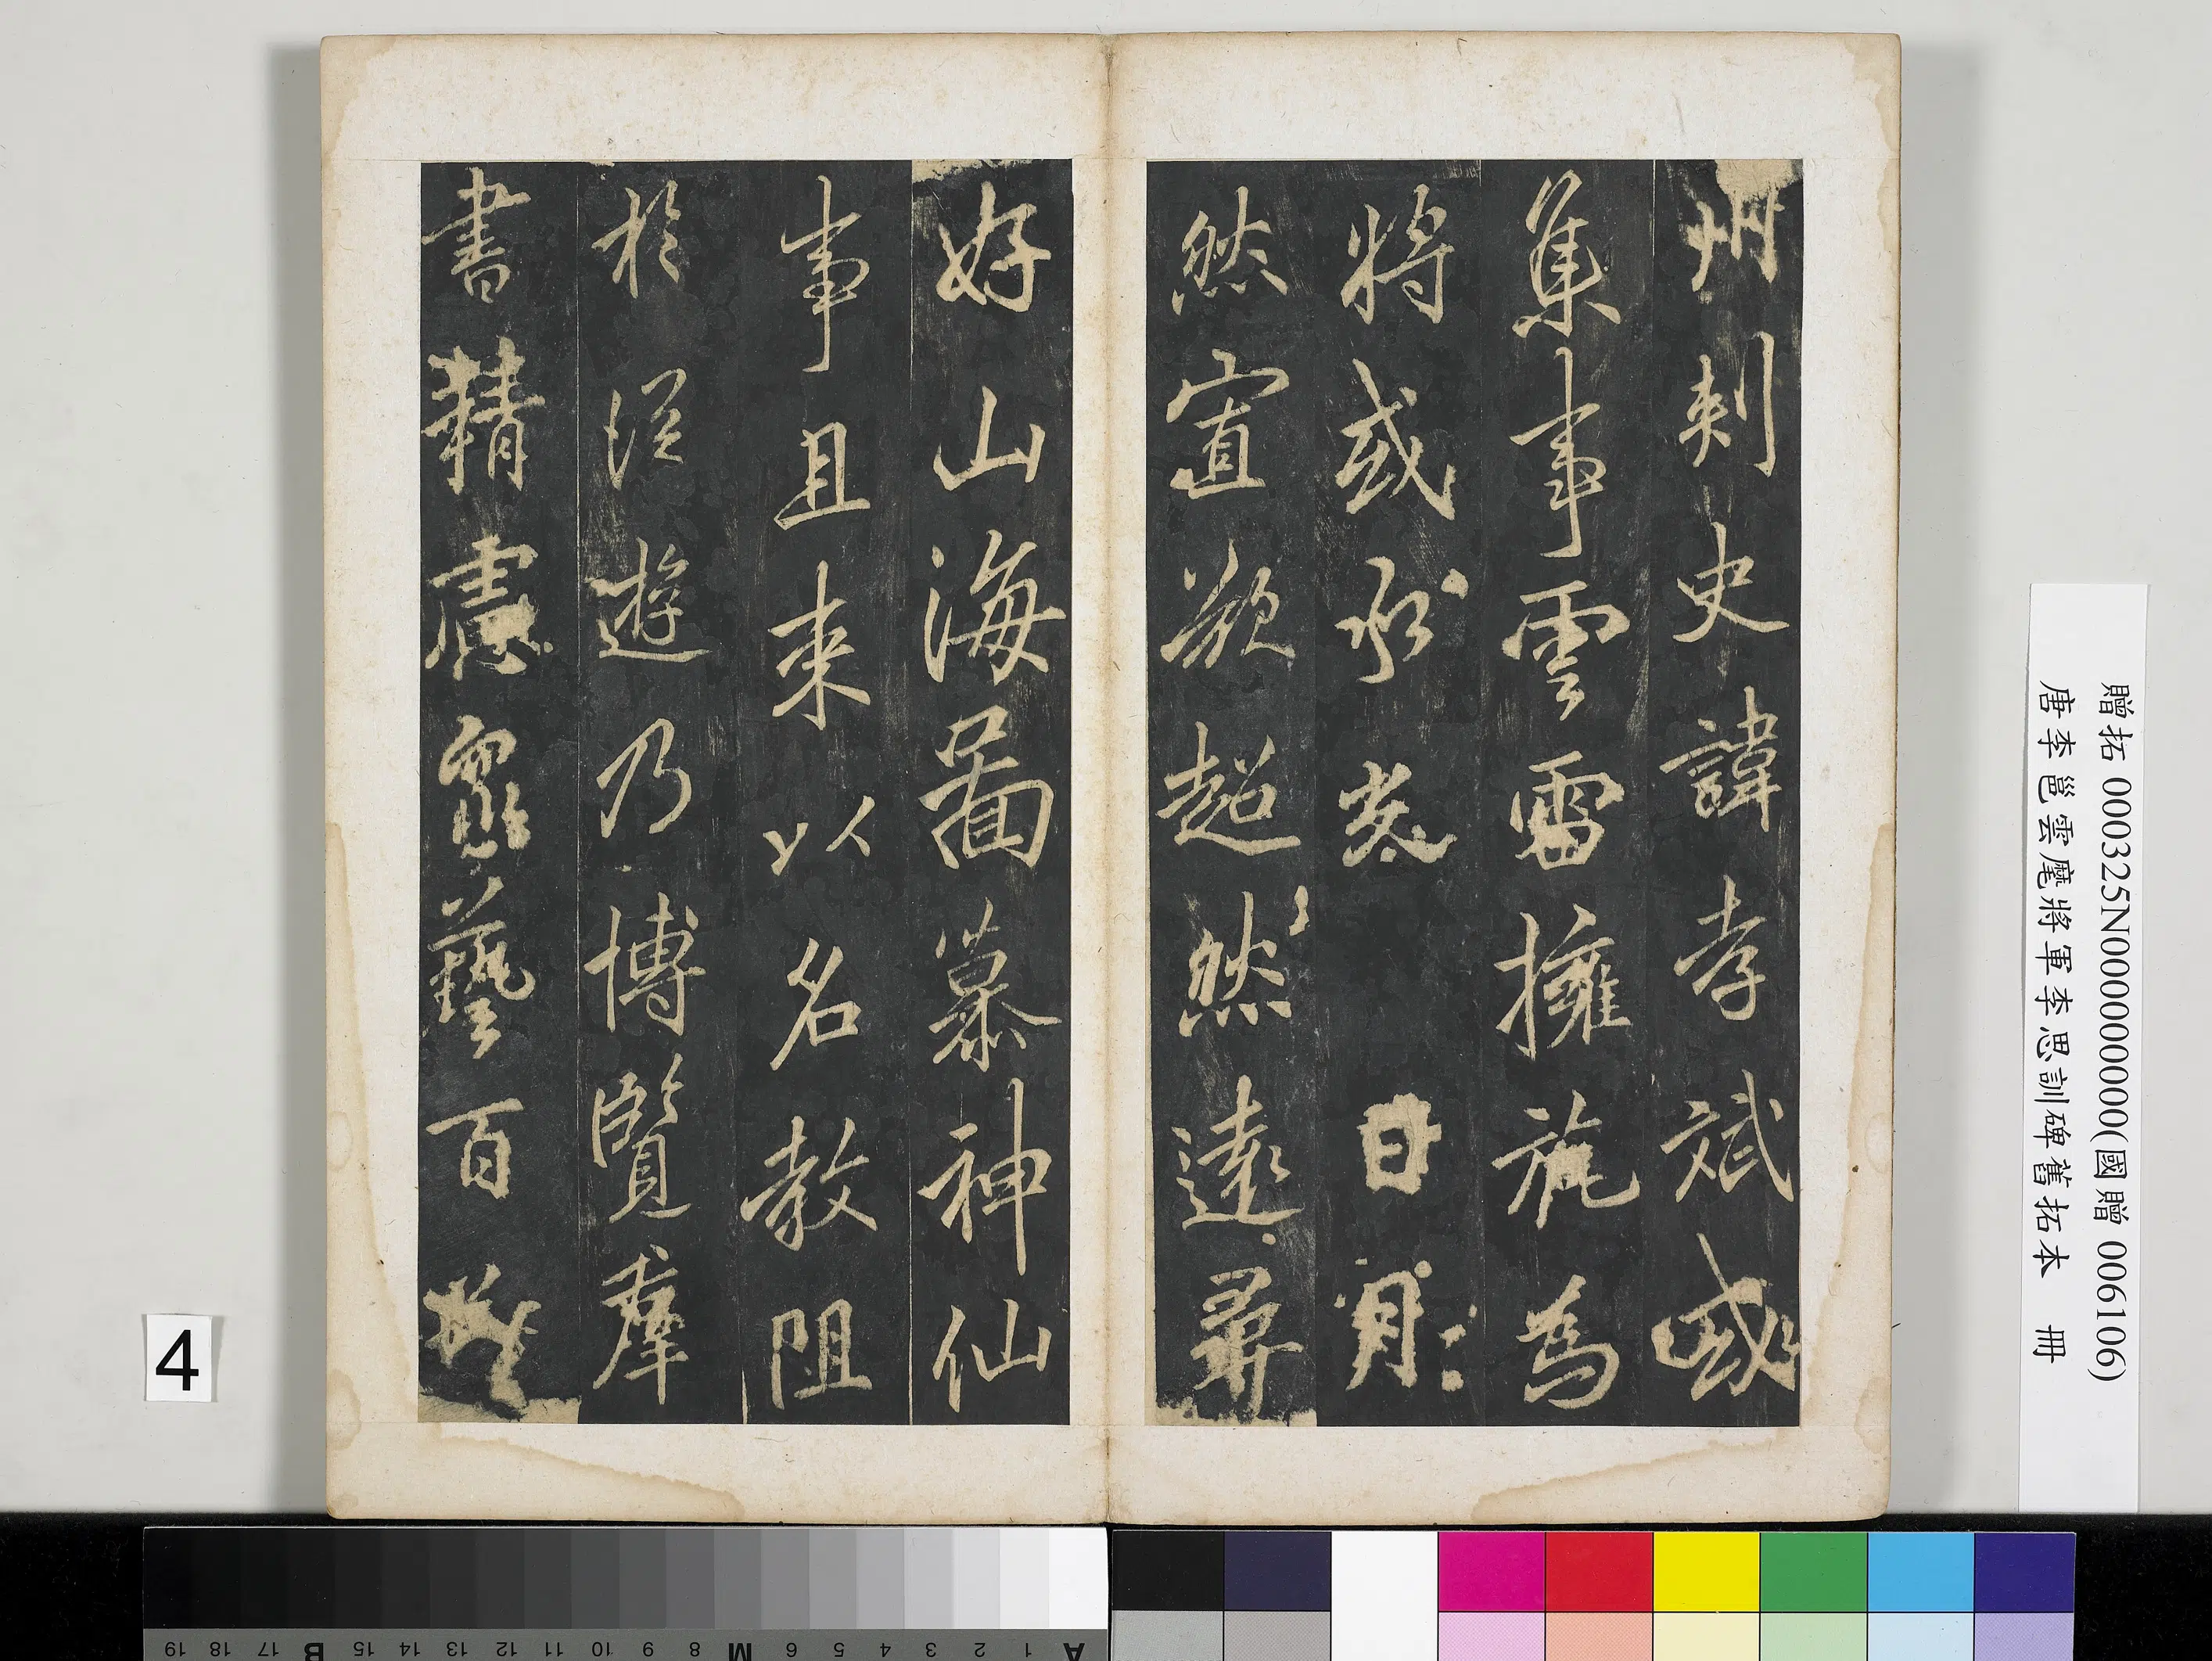 州刺史諱孝斌或
集事雲雷擁旄為
將或承光 日月
然宜欲超然遠尋
好山海啚慕神仙
事且来以名教阻
於從遊乃博覽羣
書精慮眾藝百
贈拓 000325N000000000(國贈 006106)
唐李邕雲麾將軍李思訓碑舊拓本 冊
4
A 1 2 3 4 5 6 M 8 9 10 11 12 13 14 15 B 17 18 19